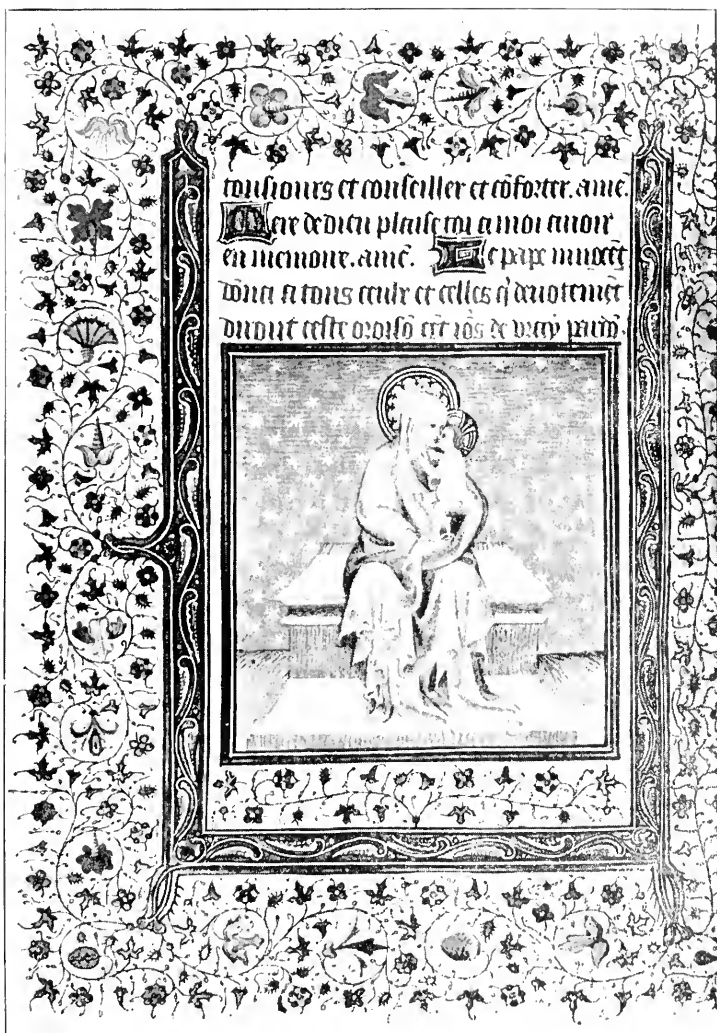 tousiours et conseiller et cõforter. amē.
Mere de dieu plaise toi a moi auoir
en memoire. amē. Le pape innocẽt
donna a tous ceulx et celles q̃ deuotemẽt
diront ceste oroisõ cẽt ios de vray pardõ.